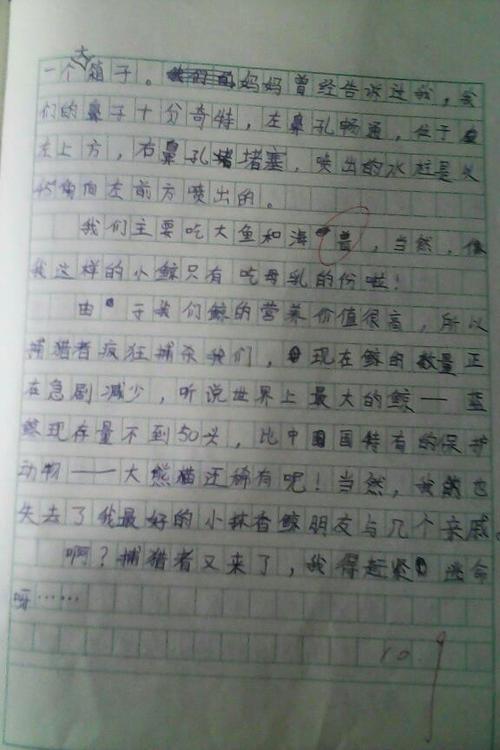 一个大箱子。妈妈曾经告诉过我，我
们的鼻子十分奇特，左鼻孔畅通，位于
左上方，右鼻孔堵塞，喷出的水柱是以
45°角向左前方喷出的。
我们主要吃大鱼和海兽，当然，像
我这样的小鲸只有吃母乳的份啦！
由于我们鲸的营养价值很高，所以
捕猎者疯狂捕杀我们，现在鲸的数量正
在急剧减少，听说世界上最大的鲸——蓝
鲸现存量不到50头，比中国国特有的保护
动物——大熊猫还稀有呢！当然，我也
失去了我最好的小抹香鲸朋友与几个亲戚。
啊？捕猎者又来了，我得赶紧逃命
呀……
10.9